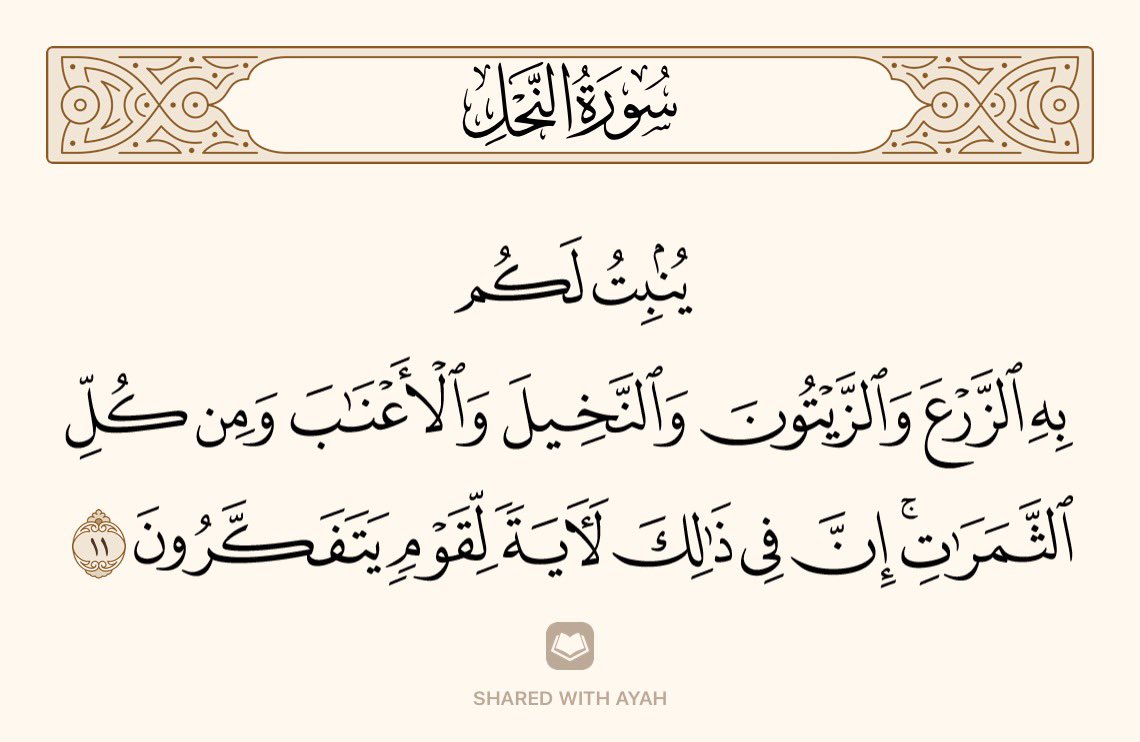 سُورَةُ النَّحْلِ
يُنۢبِتُ لَكُم
بِهِ ٱلزَّرْعَ وَٱلزَّيْتُونَ وَٱلنَّخِيلَ وَٱلْأَعْنَـٰبَ وَمِن كُلِّ
ٱلثَّمَرَٰتِ ۚ إِنَّ فِى ذَٰلِكَ لَـَٔايَةً لِّقَوْمٍ يَتَفَكَّرُونَ ١١
SHARED WITH AYAH